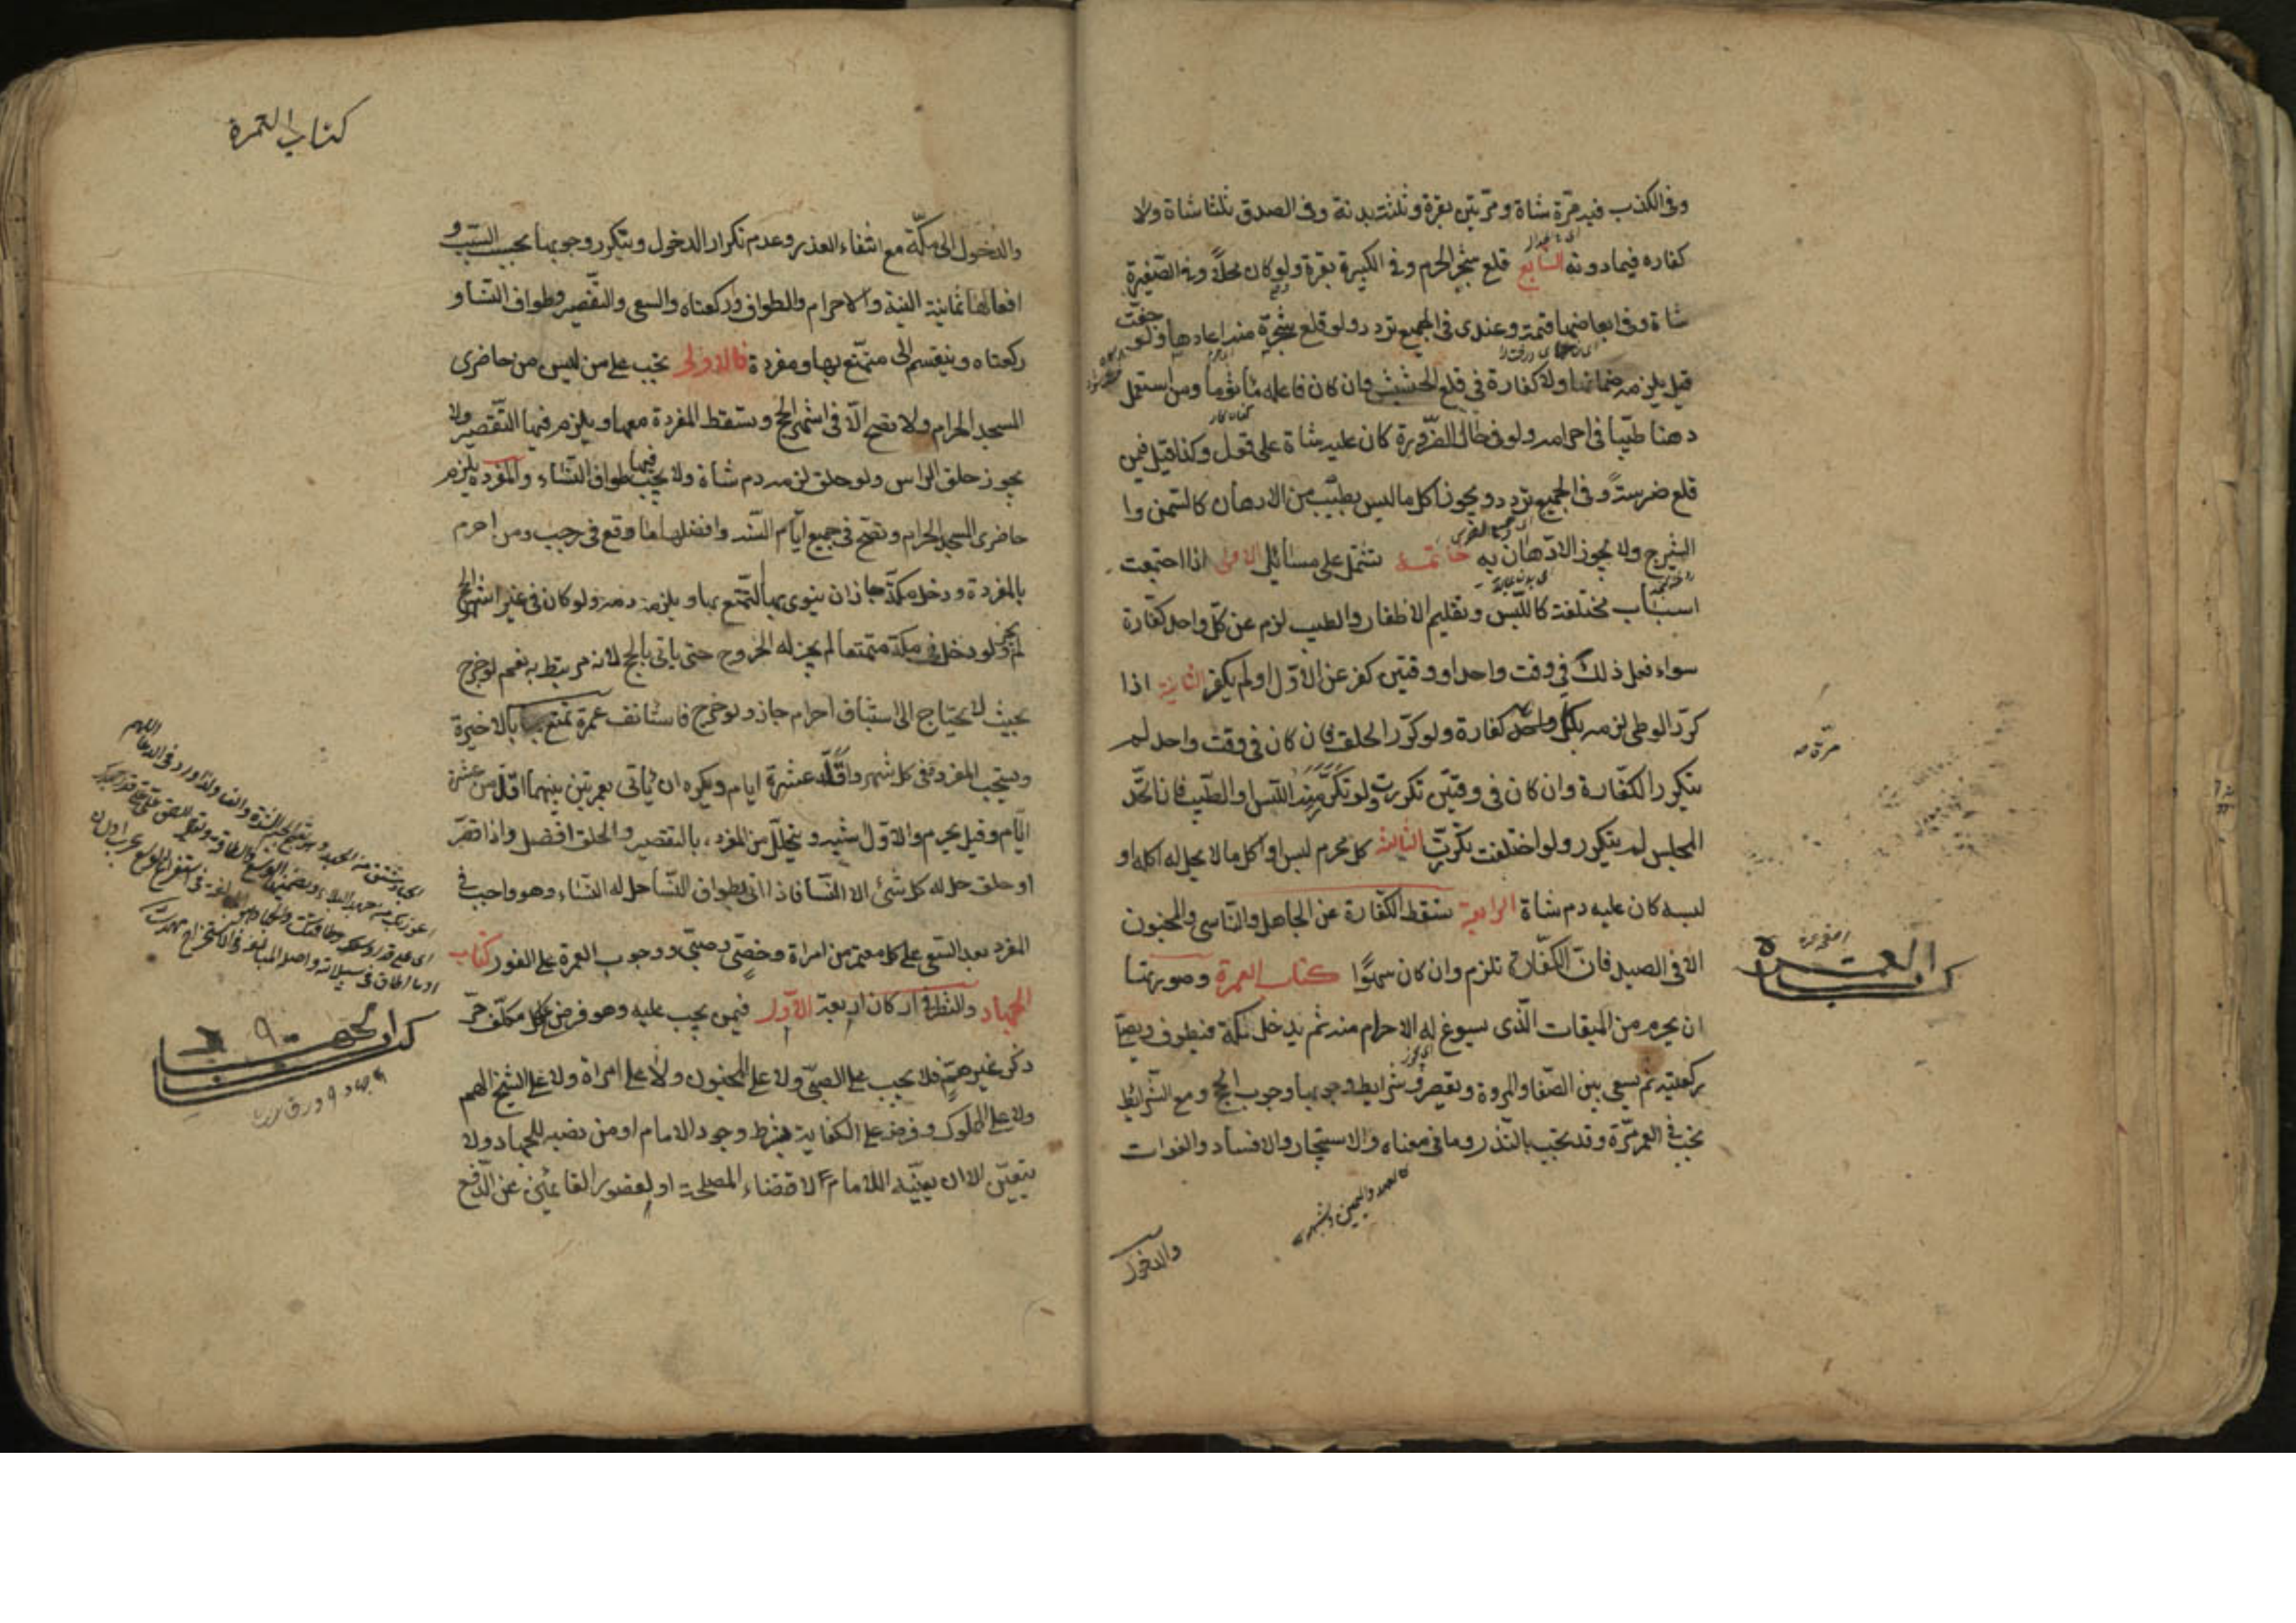 وفى الكذب فيه مرّة شاة ومرّتين بقرة وثلثه بدنة وفى الصدق ثلثا شاة ولا
كفاره فيما دونه السابع قلع شجر الحرم وفى الكبيرة بقرة ولو كان محلاً وفى الصغيرة
شاة وفى ابعاضها قيمته وعندى فى الجميع تردد ولو قلع شجرة منه اعادها ولو جفّت
قيل يلزمه ضمانها ولا كفارة فى قلع الحشيش وان كان فاعله مأثوما ومن استعمل
دهنا طيّبا فى احرامه ولو فى حال الضّرورة كان عليه شاة على قول وكذا قيل فيمن
قلع ضرسه وفى الجميع تردد ويجوز اكل ما ليس بطيّب من الادهان كالسّمن وا
الشيرج ولا يجوز الادّهان به خاتمة تشتمل على مسائل الاولى اذا اجتمعت
اسباب مختلفة كاللّبس وتقليم الاظفار والطيب لزم عن كلّ واحد كفّارة
سواء فعل ذلك فى وقت واحد او وقتين كفر عن الاوّل او لم يكفر الثانية اذا
كرّر الوطى لزمه بكلّ واحد كفارة ولو كرّر الحلق فان كان فى وقت واحد لم
يتكرر الكفّارة وان كان فى وقتين تكررت ولو تكرّر منه اللّبس او الطّيب فان اتّحد
المجلس لم يتكرر ولو اختلفت تكررت الثالثة كل محرم لبس او اكل ما لا يحل له اكله او
لبسه كان عليه دم شاة الرابعة تسقط الكفّارة عن الجاهل والنّاسى والمجنون
الا فى الصيد فانّ الكفّارة تلزم وان كان سهوًا كتاب العمرة وصورتها
ان يحرم من الميقات الّذى يسوغ له الاحرام منه ثم يدخل مكة فيطوف ويصلّى
ركعتيه ثم يسعى بين الصّفا والمروة ويقصر وشرايط وجوبها وجوب الحج ومع الشّرائط
تجب فى العمر مرّة وقد تجب بالنّذر وما فى معناه والاستيجار والافساد والفوات
كالعهد واليمين
والدخول
مرّة صه
كتاب العمرة
كتاب العمرة
والدخول الى مكّة مع انتفاء العذر وعدم تكرار الدخول ويتكرر وجوبها بحسب السّبب و
افعالها ثمانية النية والاحرام والطواف وركعتاه والسعى والتقصير وطواف النّساء و
ركعتاه وينقسم الى متمتّع بها ومفردة فالاولى تجب على من ليس من حاضرى
المسجد الحرام ولا تصح الّا فى اشهر الحج وتسقط المفردة معها ويلزم فيها التّقصير ولا
يجوز حلق الراس ولو حلق لزمه دم شاة ولا يجب فيها طواف النّساء والمفردة يلزم
حاضرى المسجد الحرام وتصحّ فى جميع ايّام السّنه وافضلها ما وقع فى رجب ومن احرم
بالمفردة ودخل مكّة جاز ان ينوى بها التّمتع بها ويلزمه دمه ولو كان فى غير اشهر الحج
لم يجز ولو دخل فى مكّة متمتعا لم يجز له الخروج حتى ياتى بالحج لانه مرتبط به نعم لو خرج
بحيث لا يحتاج الى استيناف احرام جاز ولو خرج فاستانف عمرة تمتع بالاخيرة
ويستحب المفردة فى كل شهر واقلّه عشرة ايام ويكره ان ياتى بعمرتين بينهما اقلّ من عشرة
ايّام وقيل يحرم والاوّل اشبه ويتحلّل من المفردة بالتقصير والحلق افضل واذا قصّر
او حلق حل له كل شئ الا النّسا فاذا اتى بطواف النّسا حل له النّساء وهو واجب فى
المفردة بعد السّعى على كل معتمر من امراة وخصّى وصبى ووجوب العمرة على الفور كتاب
الجهاد والنّظر فى اركان اربعة الاوّل فيمن يجب عليه وهو فرض على كل مكلّف حرّ
ذكر غير همّ فلا يجب على الصبىّ ولا على المجنون ولا على امراة ولا على الشيخ الهم
ولا على المملوك وفرضه على الكفاية بشرط وجود الامام او من نصبه للجهاد ولا
يتعيّن الا ان يعيّنه الامام لاقتضاء المصلحة او لقصور القائمين عن الدّفع
كتاب الجهاد